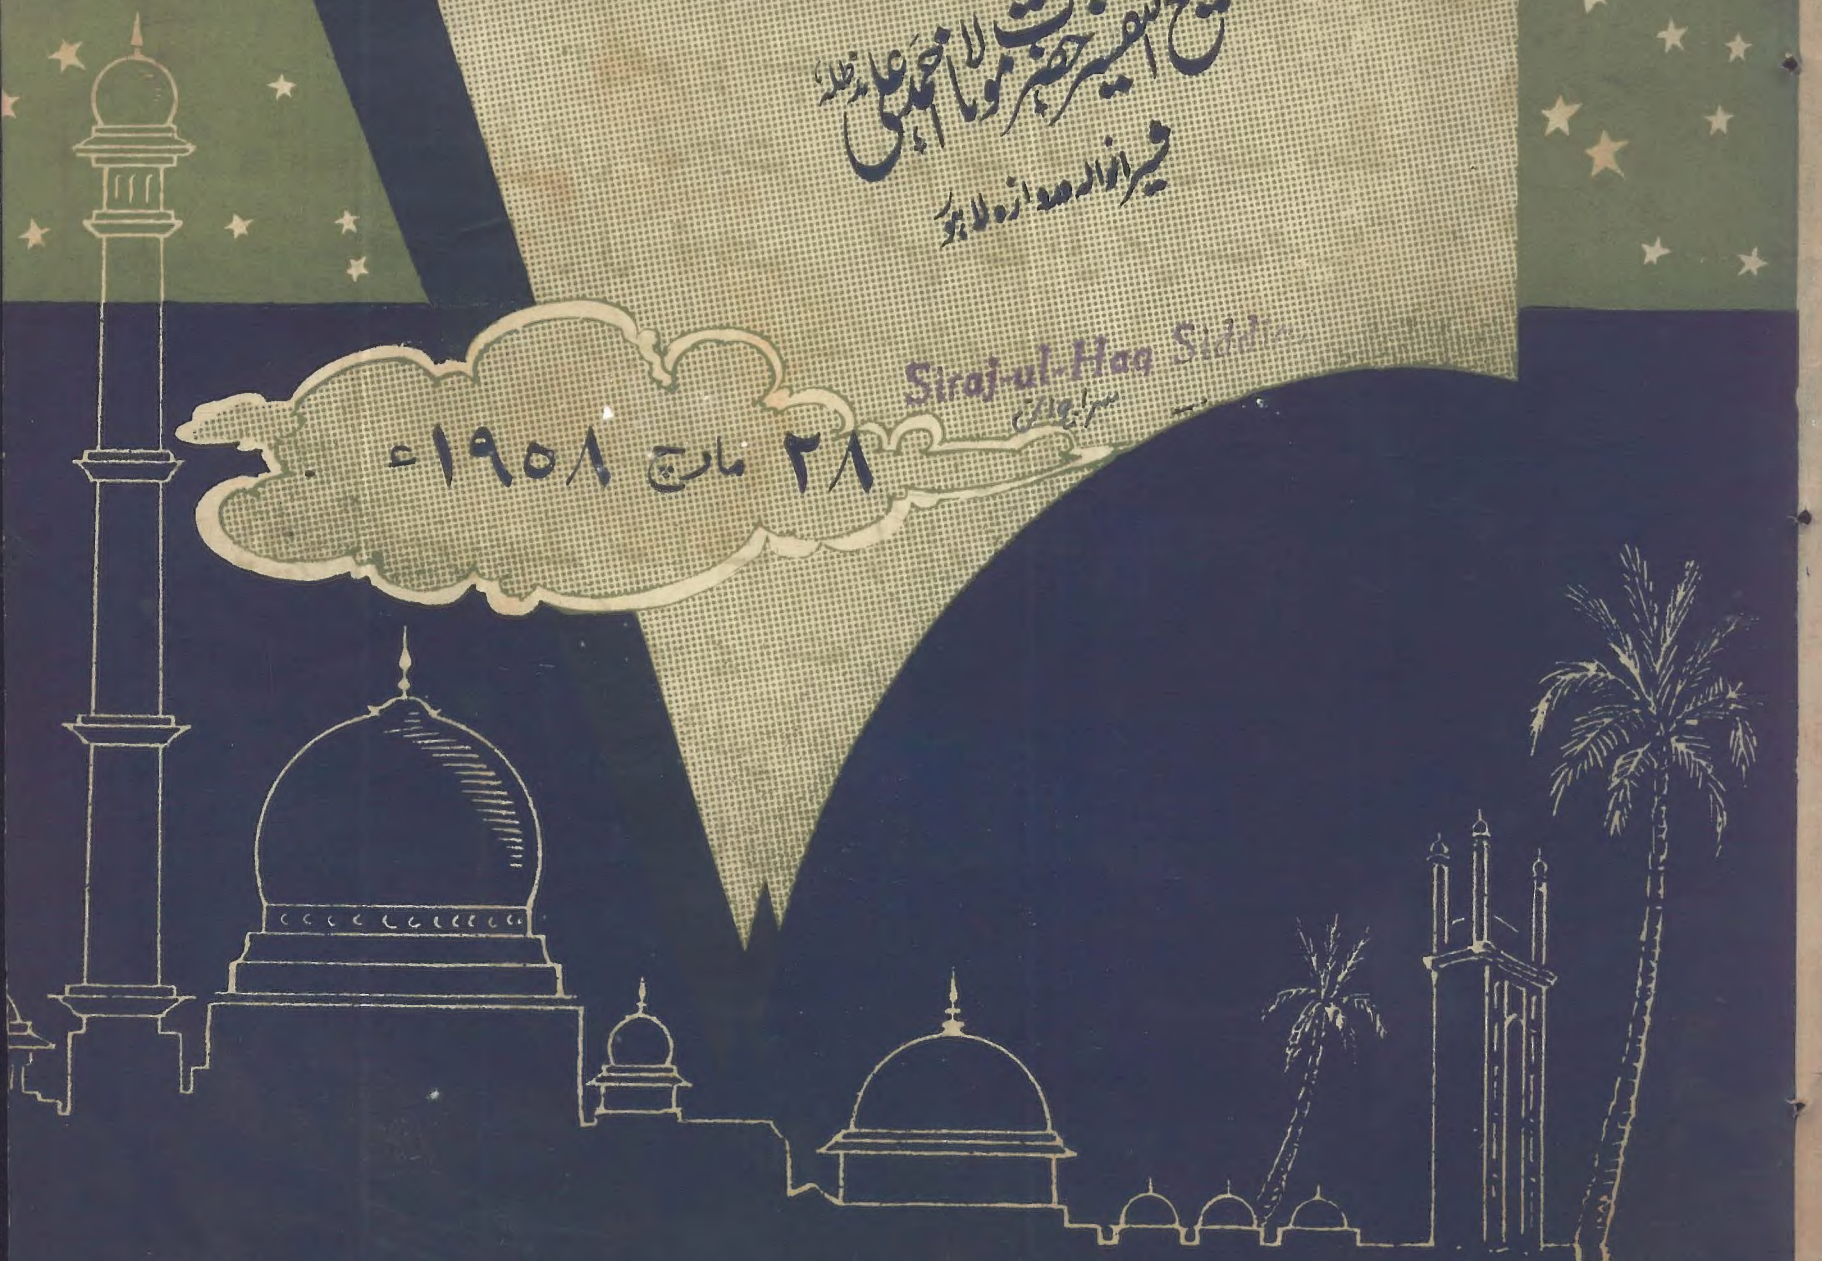 شیخ التفسیر حضرت مولانا احمد علی مدظلہ
شیرانوالہ دروازہ لاہور
Siraj-ul-Haq
۲۸ مارچ ۱۹۵۸ء